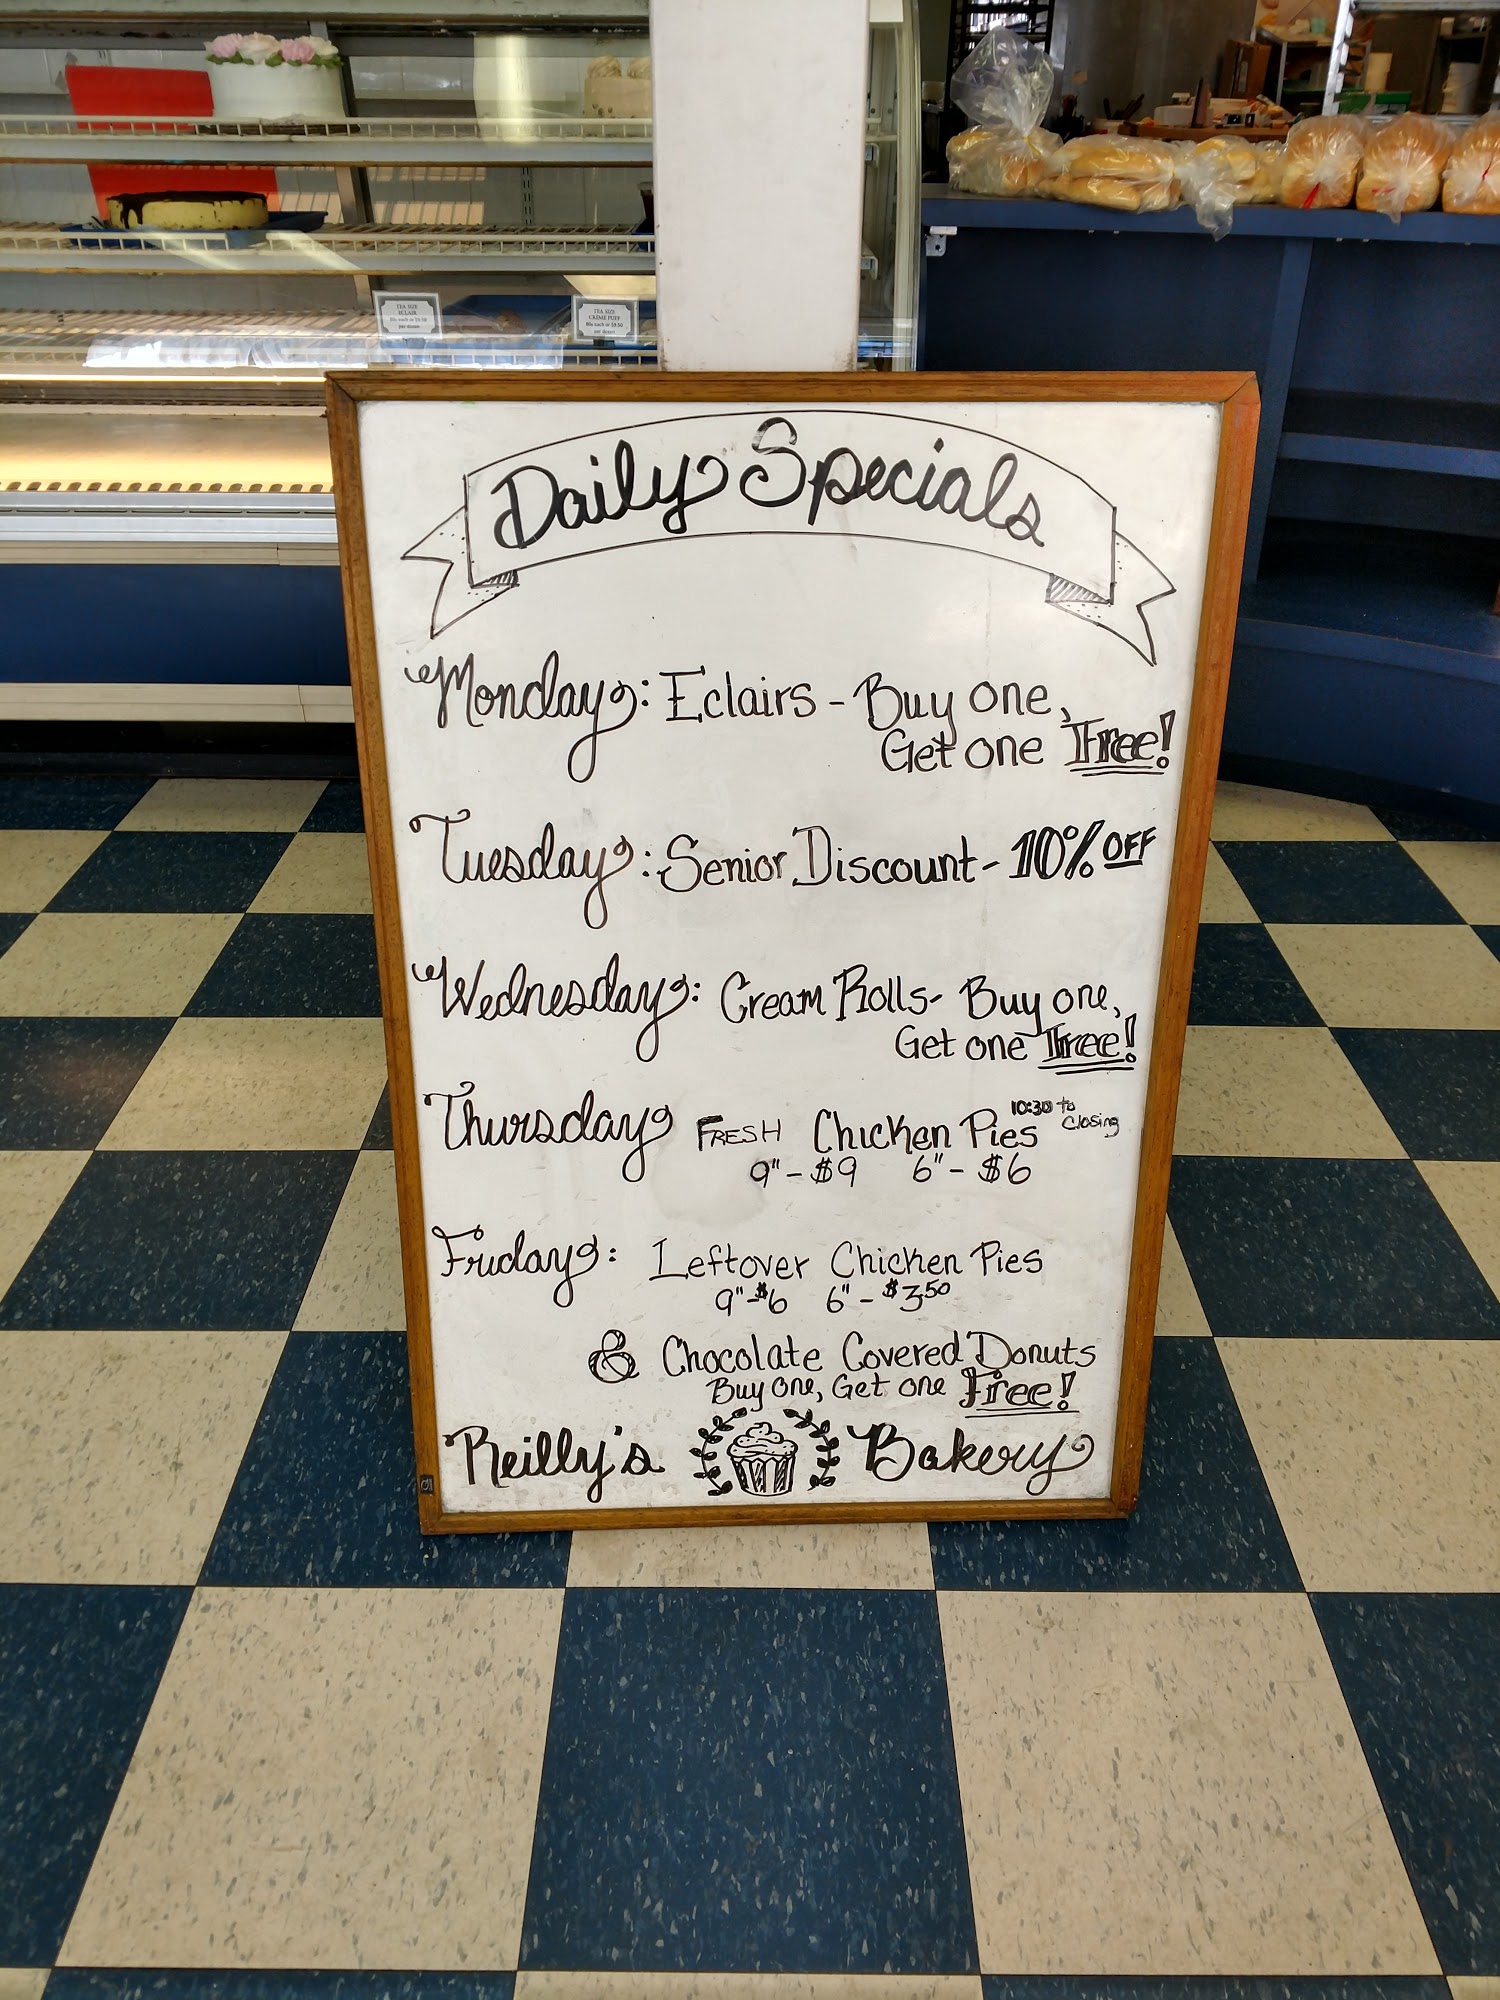 TEA SIZE
ECLAIR
per dozen
TEA SIZE
CREME PUFF
per dozen
Daily Specials
Monday: Eclairs - Buy one,
Get one Free!
Tuesday: Senior Discount - 10% OFF
Wednesday: Cream Rolls - Buy one,
Get one Free!
Thursday FRESH Chicken Pies 10:30 to
Closing
9" - $9 6" - $6
Friday: Leftover Chicken Pies
9" - $6 6" - $3.50
& Chocolate Covered Donuts
Buy One, Get one Free!
Reilly's Bakery